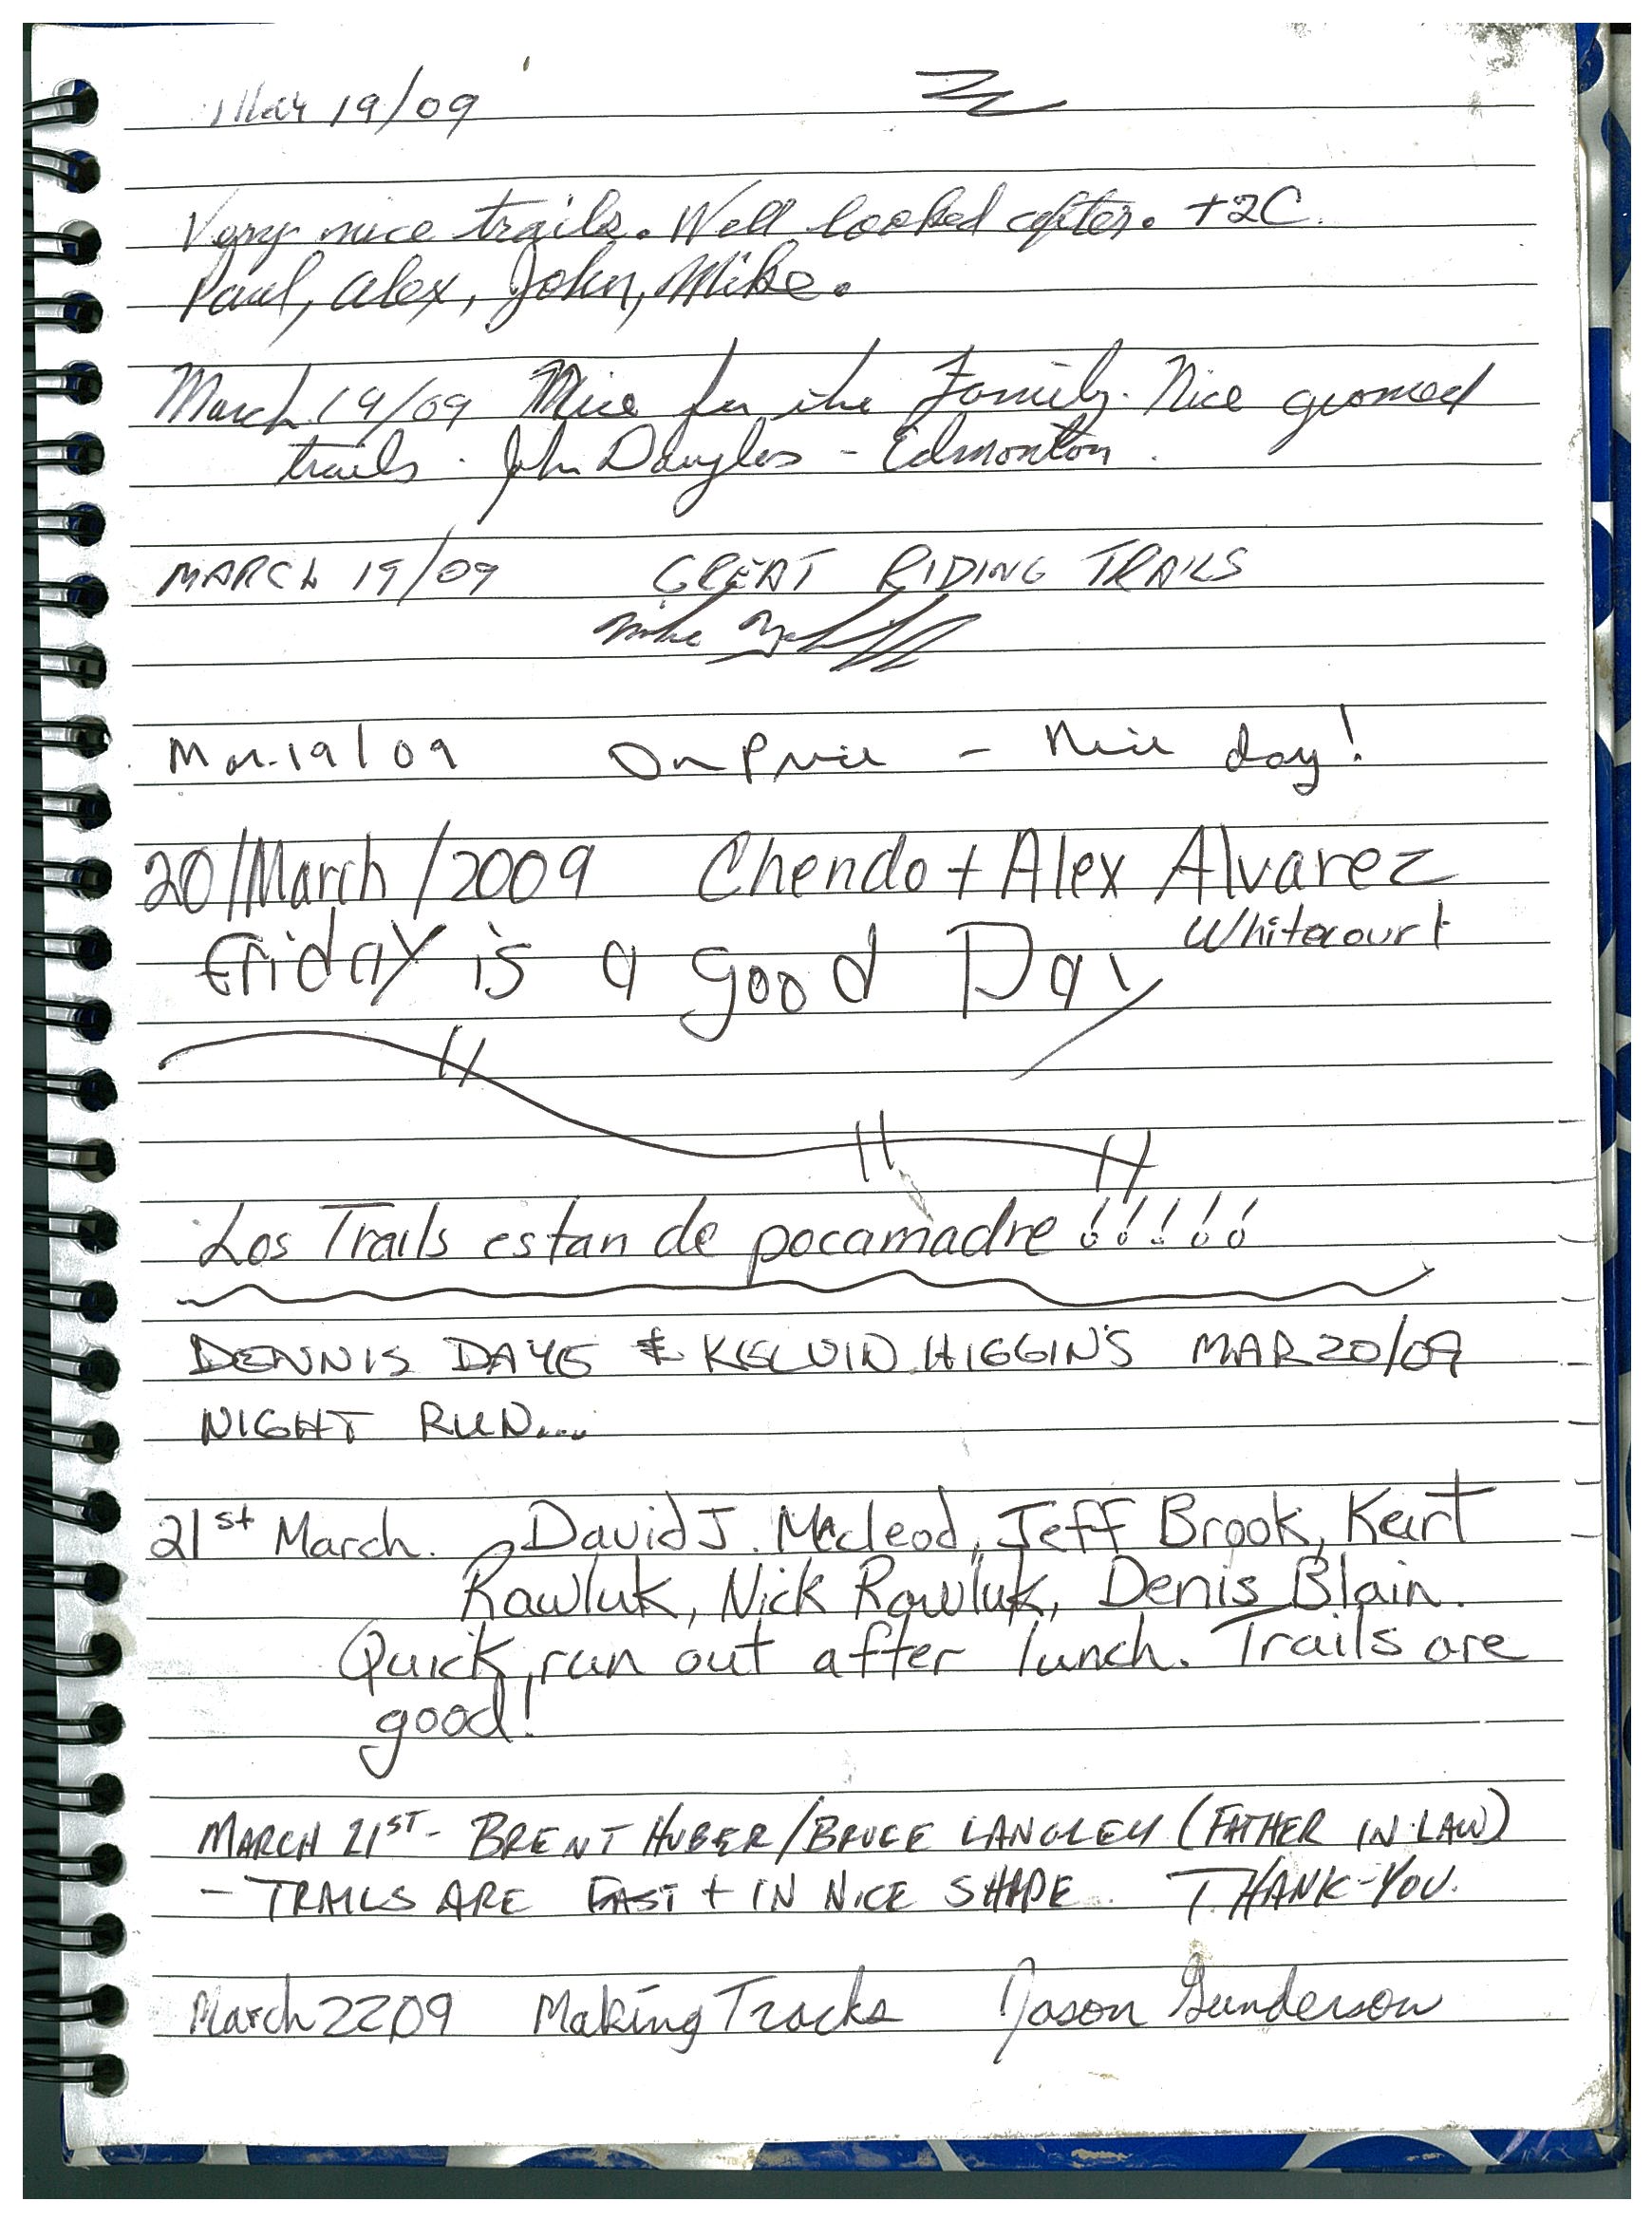 Mar 19/09
Very nice trails. Well looked after. +2C.
Paul, Alex, John, Mike.
March 19/09 Nice for the Family. Nice groomed
trails. John Douglas - Edmonton.
MARCH 19/09 GREAT RIDING TRAILS
Mike
Mar. 19/09 - Nice day!
20/March/2009 Chendo + Alex Alvarez
Whitecourt
Friday is a good Day
Los Trails estan de pocamadre!!!!!
DENNIS DAYE & KELVIN HIGGINS MAR 20/09
NIGHT RUN...
21st March. David J. Macleod, Jeff Brook, Kurt
Rawluk, Nick Rawluk, Denis Blain.
Quick run out after lunch. Trails are
good!
MARCH 21ST - BRENT HUBER/BRUCE LANGLEY (FATHER IN-LAW)
- TRAILS ARE FAST + IN NICE SHAPE. THANK-YOU.
March 22 09 Making Tracks Jason Gunderson